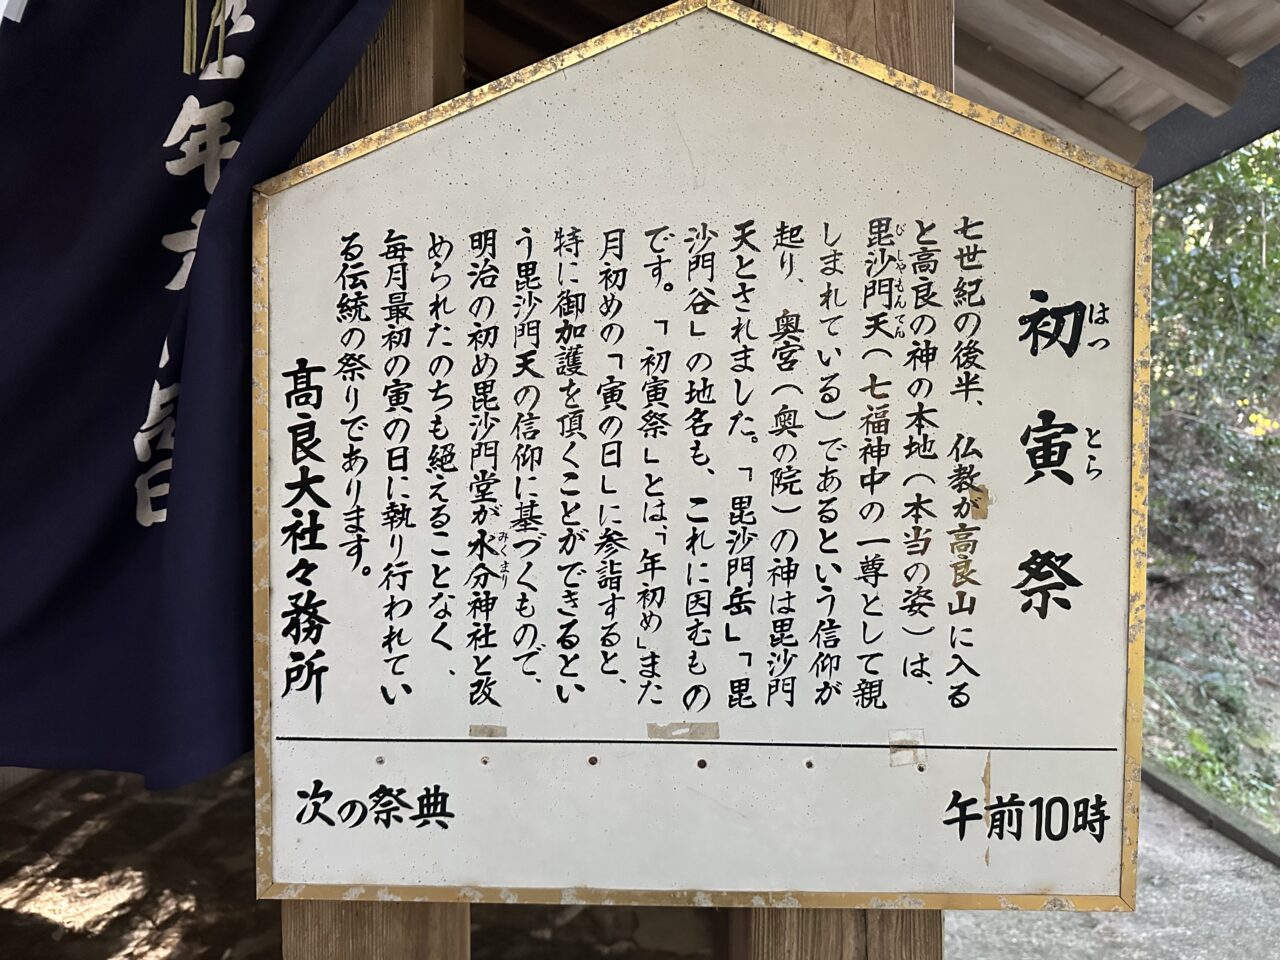 初寅祭
はつ とら
七世紀の後半、仏教が高良山に入る
と高良の神の本地(本当の姿)は、
毘沙門天(七福神中の一尊として親
びしゃもんてん
しまれている)であるという信仰が
起り、奥宮(奥の院)の神は毘沙門
天とされました。「毘沙門岳」「毘
沙門谷」の地名も、これに因むもの
です。「初寅祭」とは、「年初め」また
月初めの「寅の日」に参詣すると、
特に御加護を頂くことができるとい
う毘沙門天の信仰に基づくもので、
明治の初め毘沙門堂が水分神社と改
みくまり
められたのちも絶えることなく、
毎月最初の寅の日に執り行われてい
る伝統の祭りであります。
高良大社々務所
午前10時
次の祭典
年